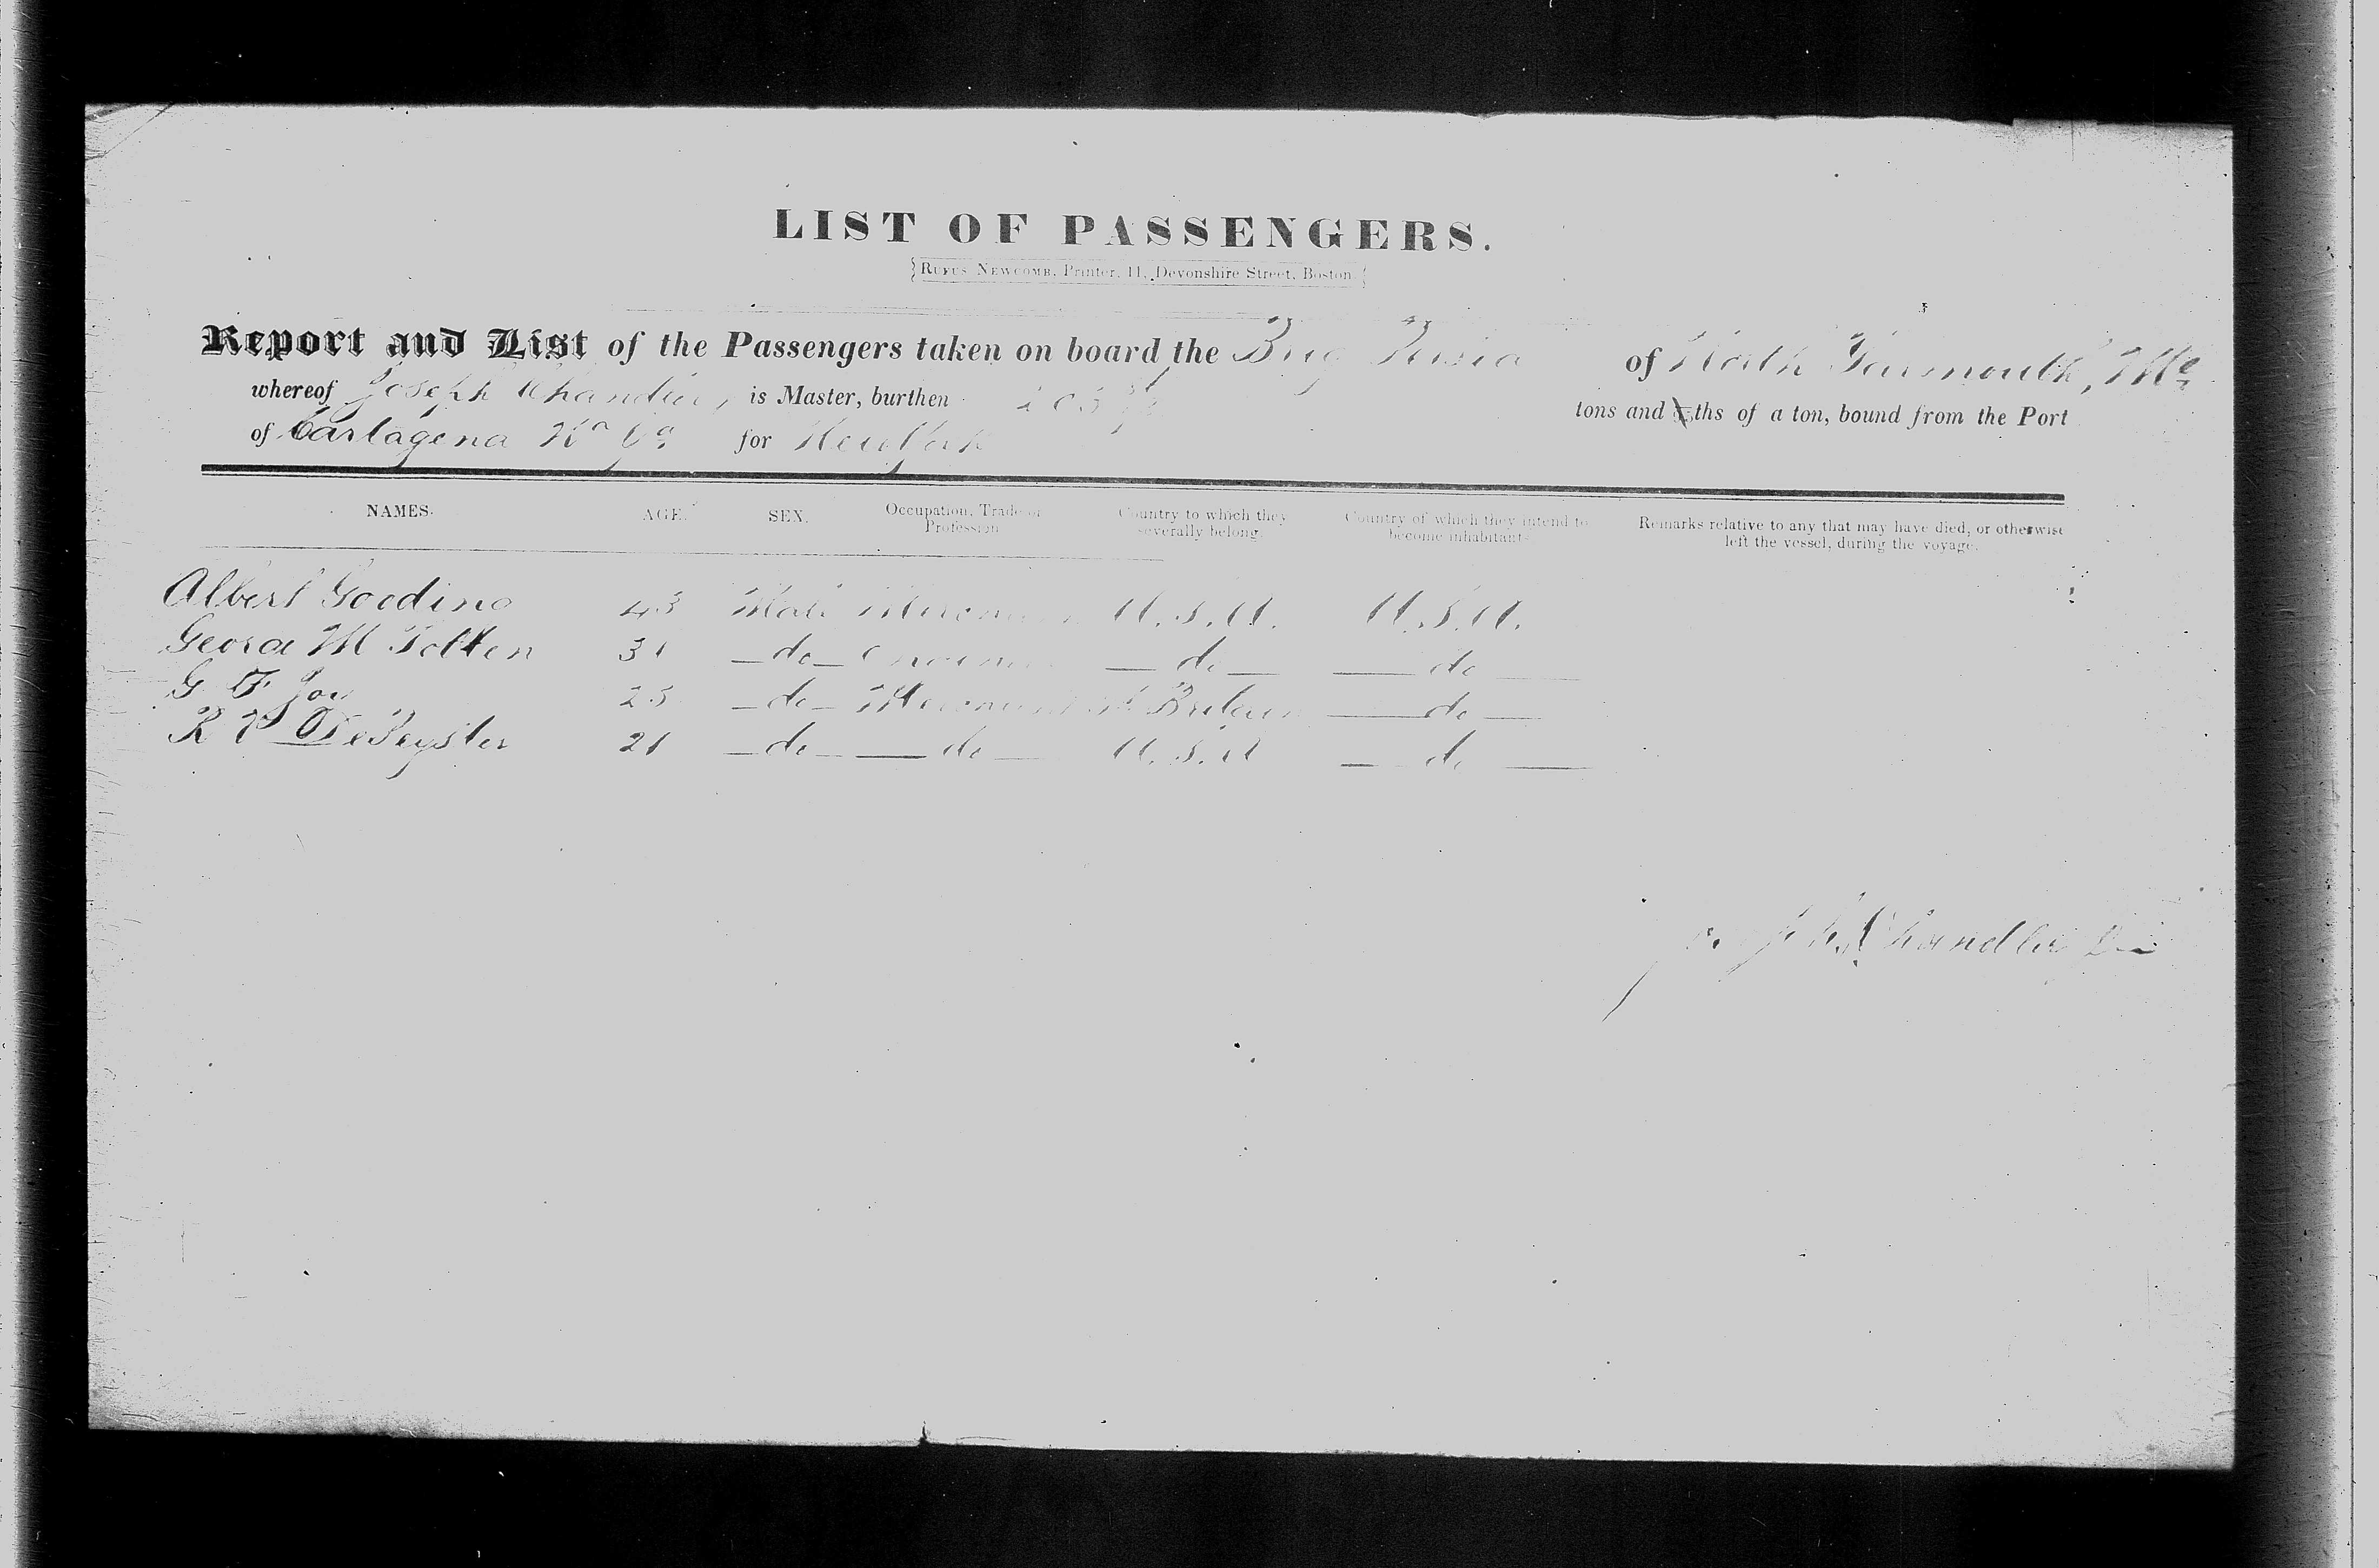 LIST OF PASSENGERS.
RUFUS NEWCOMB, Printer, 11, Devonshire Street, Boston.
Report and List of the Passengers taken on board the Brig of North Yarmouth, Me
whereof Joseph Chandler, is Master, burthen tons and ths of a ton, bound from the Port
of Cartagena Na Ga for New York
NAMES. AGE. SEX. Occupation, Trade or Profession Country to which they severally belong. Country of which they intend to become inhabitants Remarks relative to any that may have died, or otherwise left the vessel, during the voyage.
Albert Gooding 43 Male U.S.A. U.S.A.
George M Totten 31 do do do
G F Joy 23 do Britain do
R P DePeyster 21 do do U.S.A do
Joseph Chandler